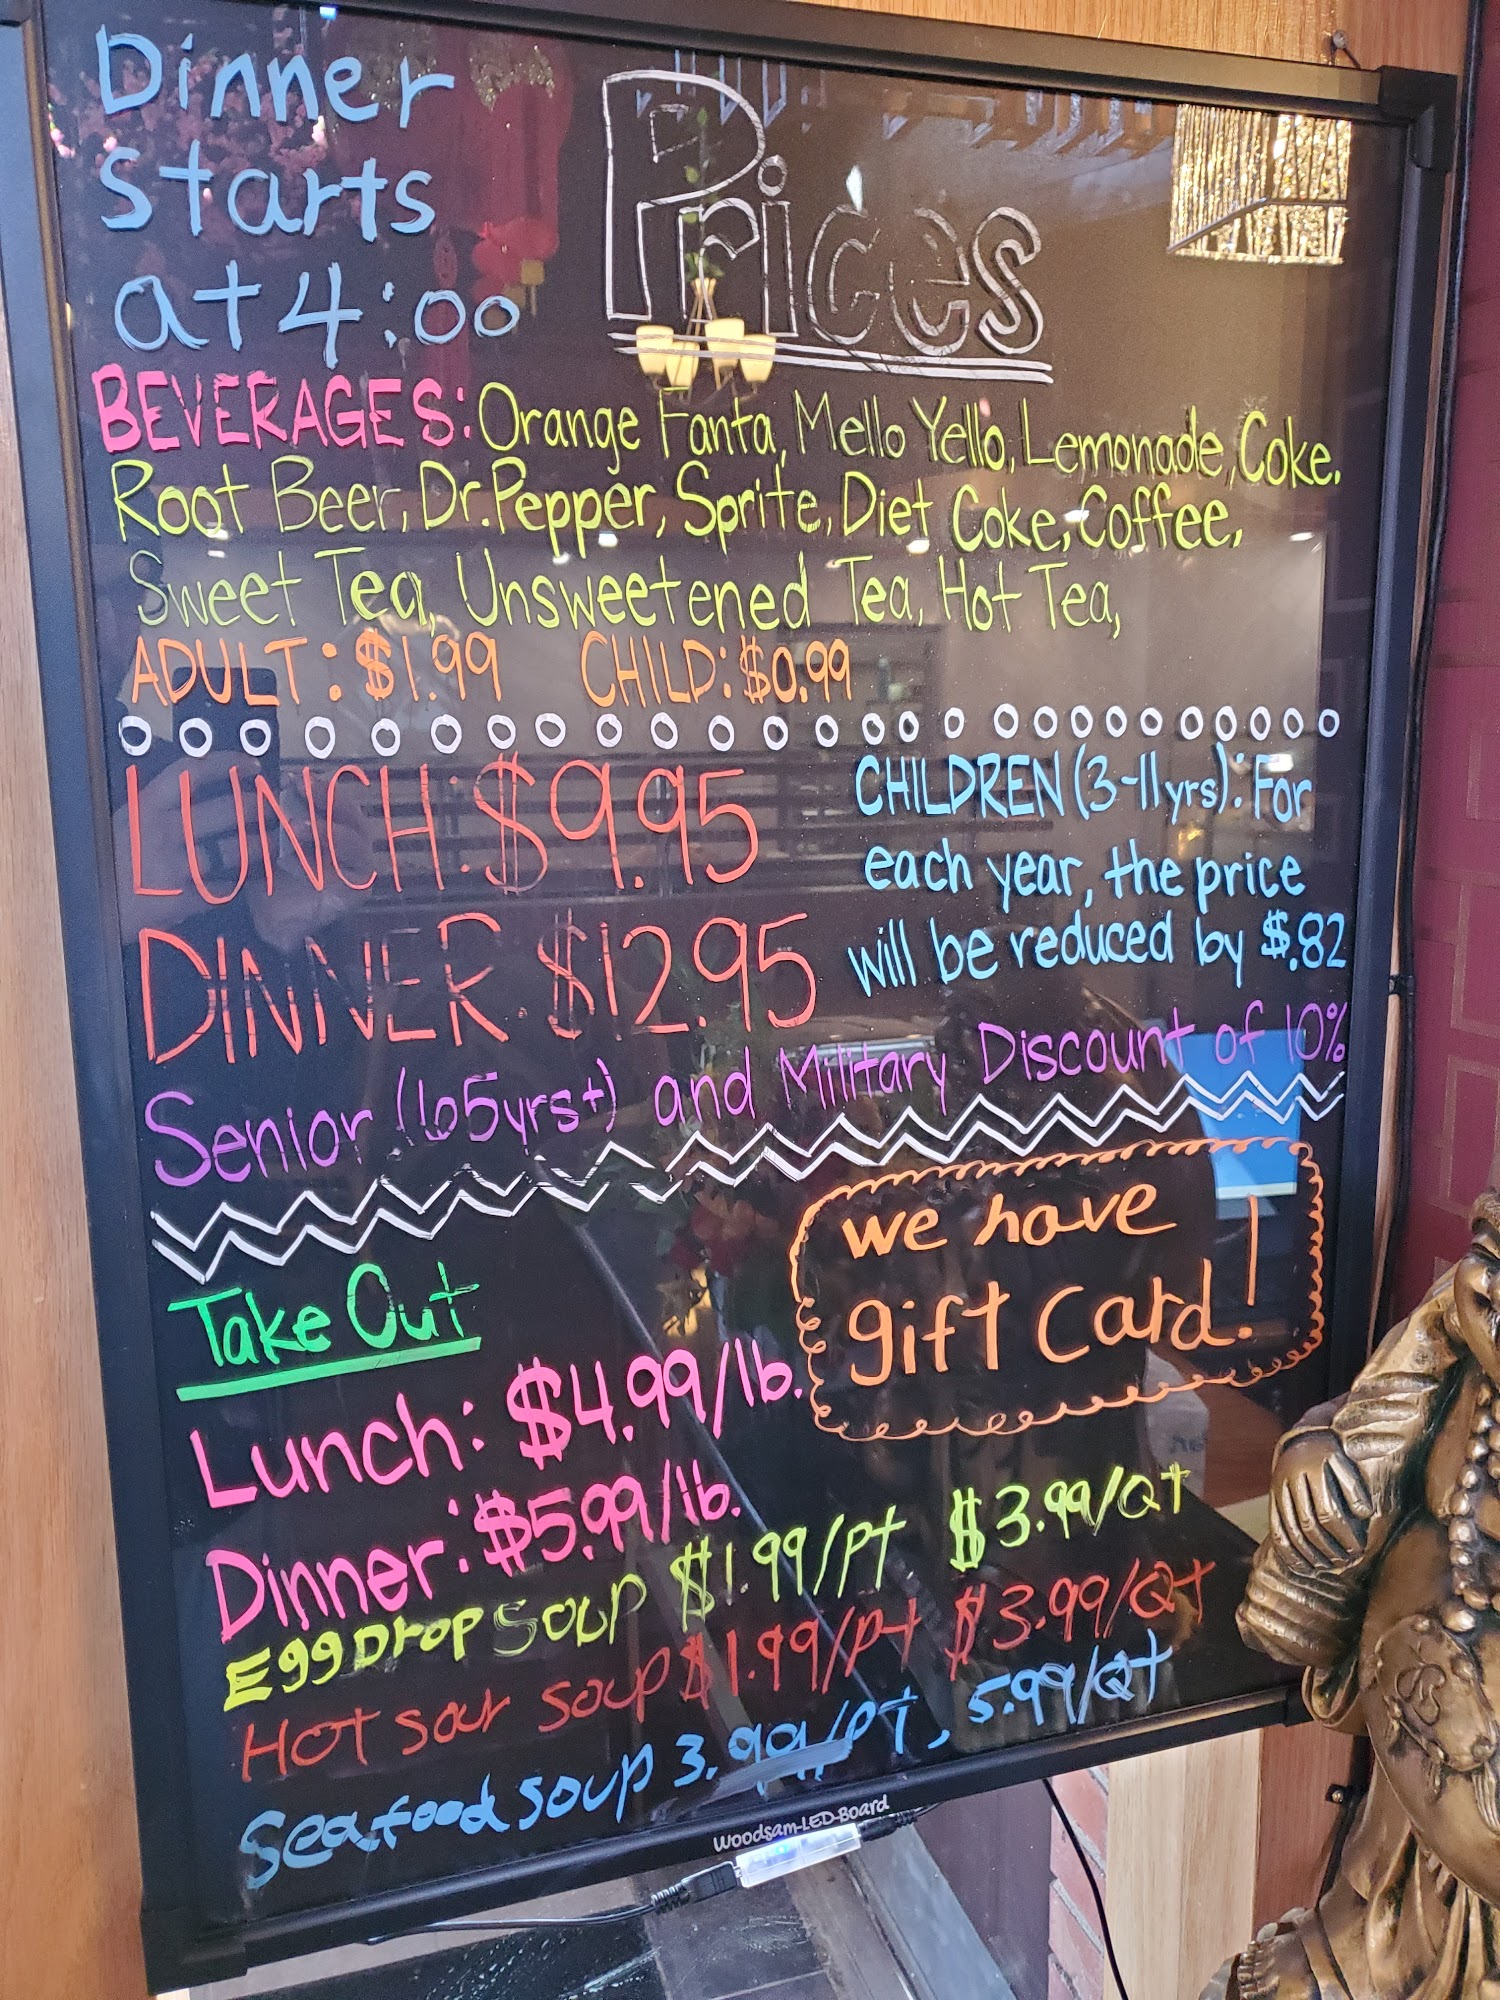 Dinner
starts
at 4:00
Prices
BEVERAGES: Orange Fanta, Mello Yello, Lemonade, Coke,
Root Beer, Dr. Pepper, Sprite, Diet Coke, Coffee,
Sweet Tea, Unsweetened Tea, Hot Tea,
ADULT: $1.99 CHILD: $0.99
LUNCH: $9.95
DINNER: $12.95
CHILDREN (3-11yrs): For
each year, the price
will be reduced by $.82
Senior (65yrs+) and Military Discount of 10%
we have
gift card!
Take Out
Lunch: $4.99/lb.
Dinner: $5.99/lb.
Egg Drop soup $1.99/pt $3.99/Qt
Hot sour soup $1.99/pt $3.99/Qt
Seafood soup 3.99/pt, 5.99/Qt
Woodsam-LED-Board